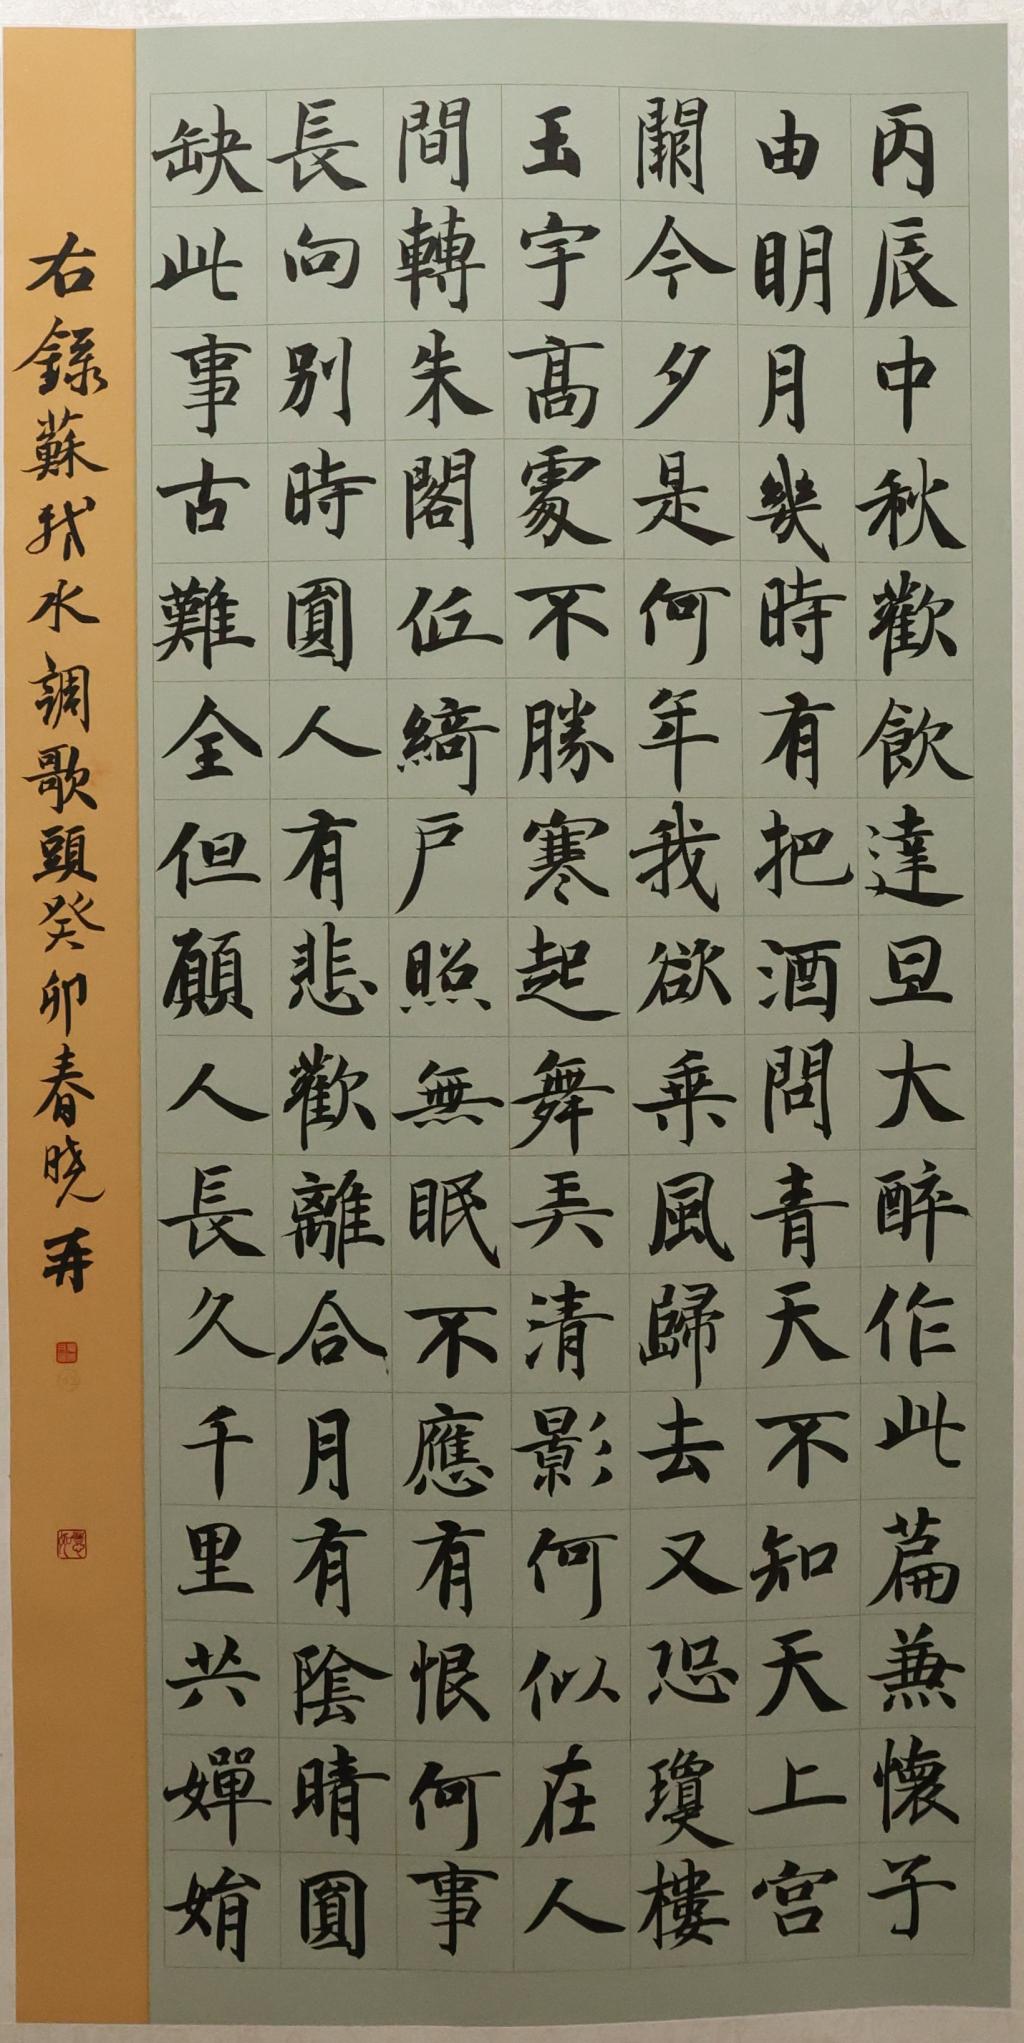 丙辰中秋歡飲達旦大醉作此篇兼懷子
由明月幾時有把酒問青天不知天上宫
闕今夕是何年我欲乗風歸去又恐瓊樓
玉宇髙處不勝寒起舞弄清影何似在人
間轉朱閣低綺戶照無眠不應有恨何事
長向別時圓人有悲歡離合月有陰晴圓
缺此事古難全但願人長久千里共嬋娟
右錄蘇軾水調歌頭癸卯春曉